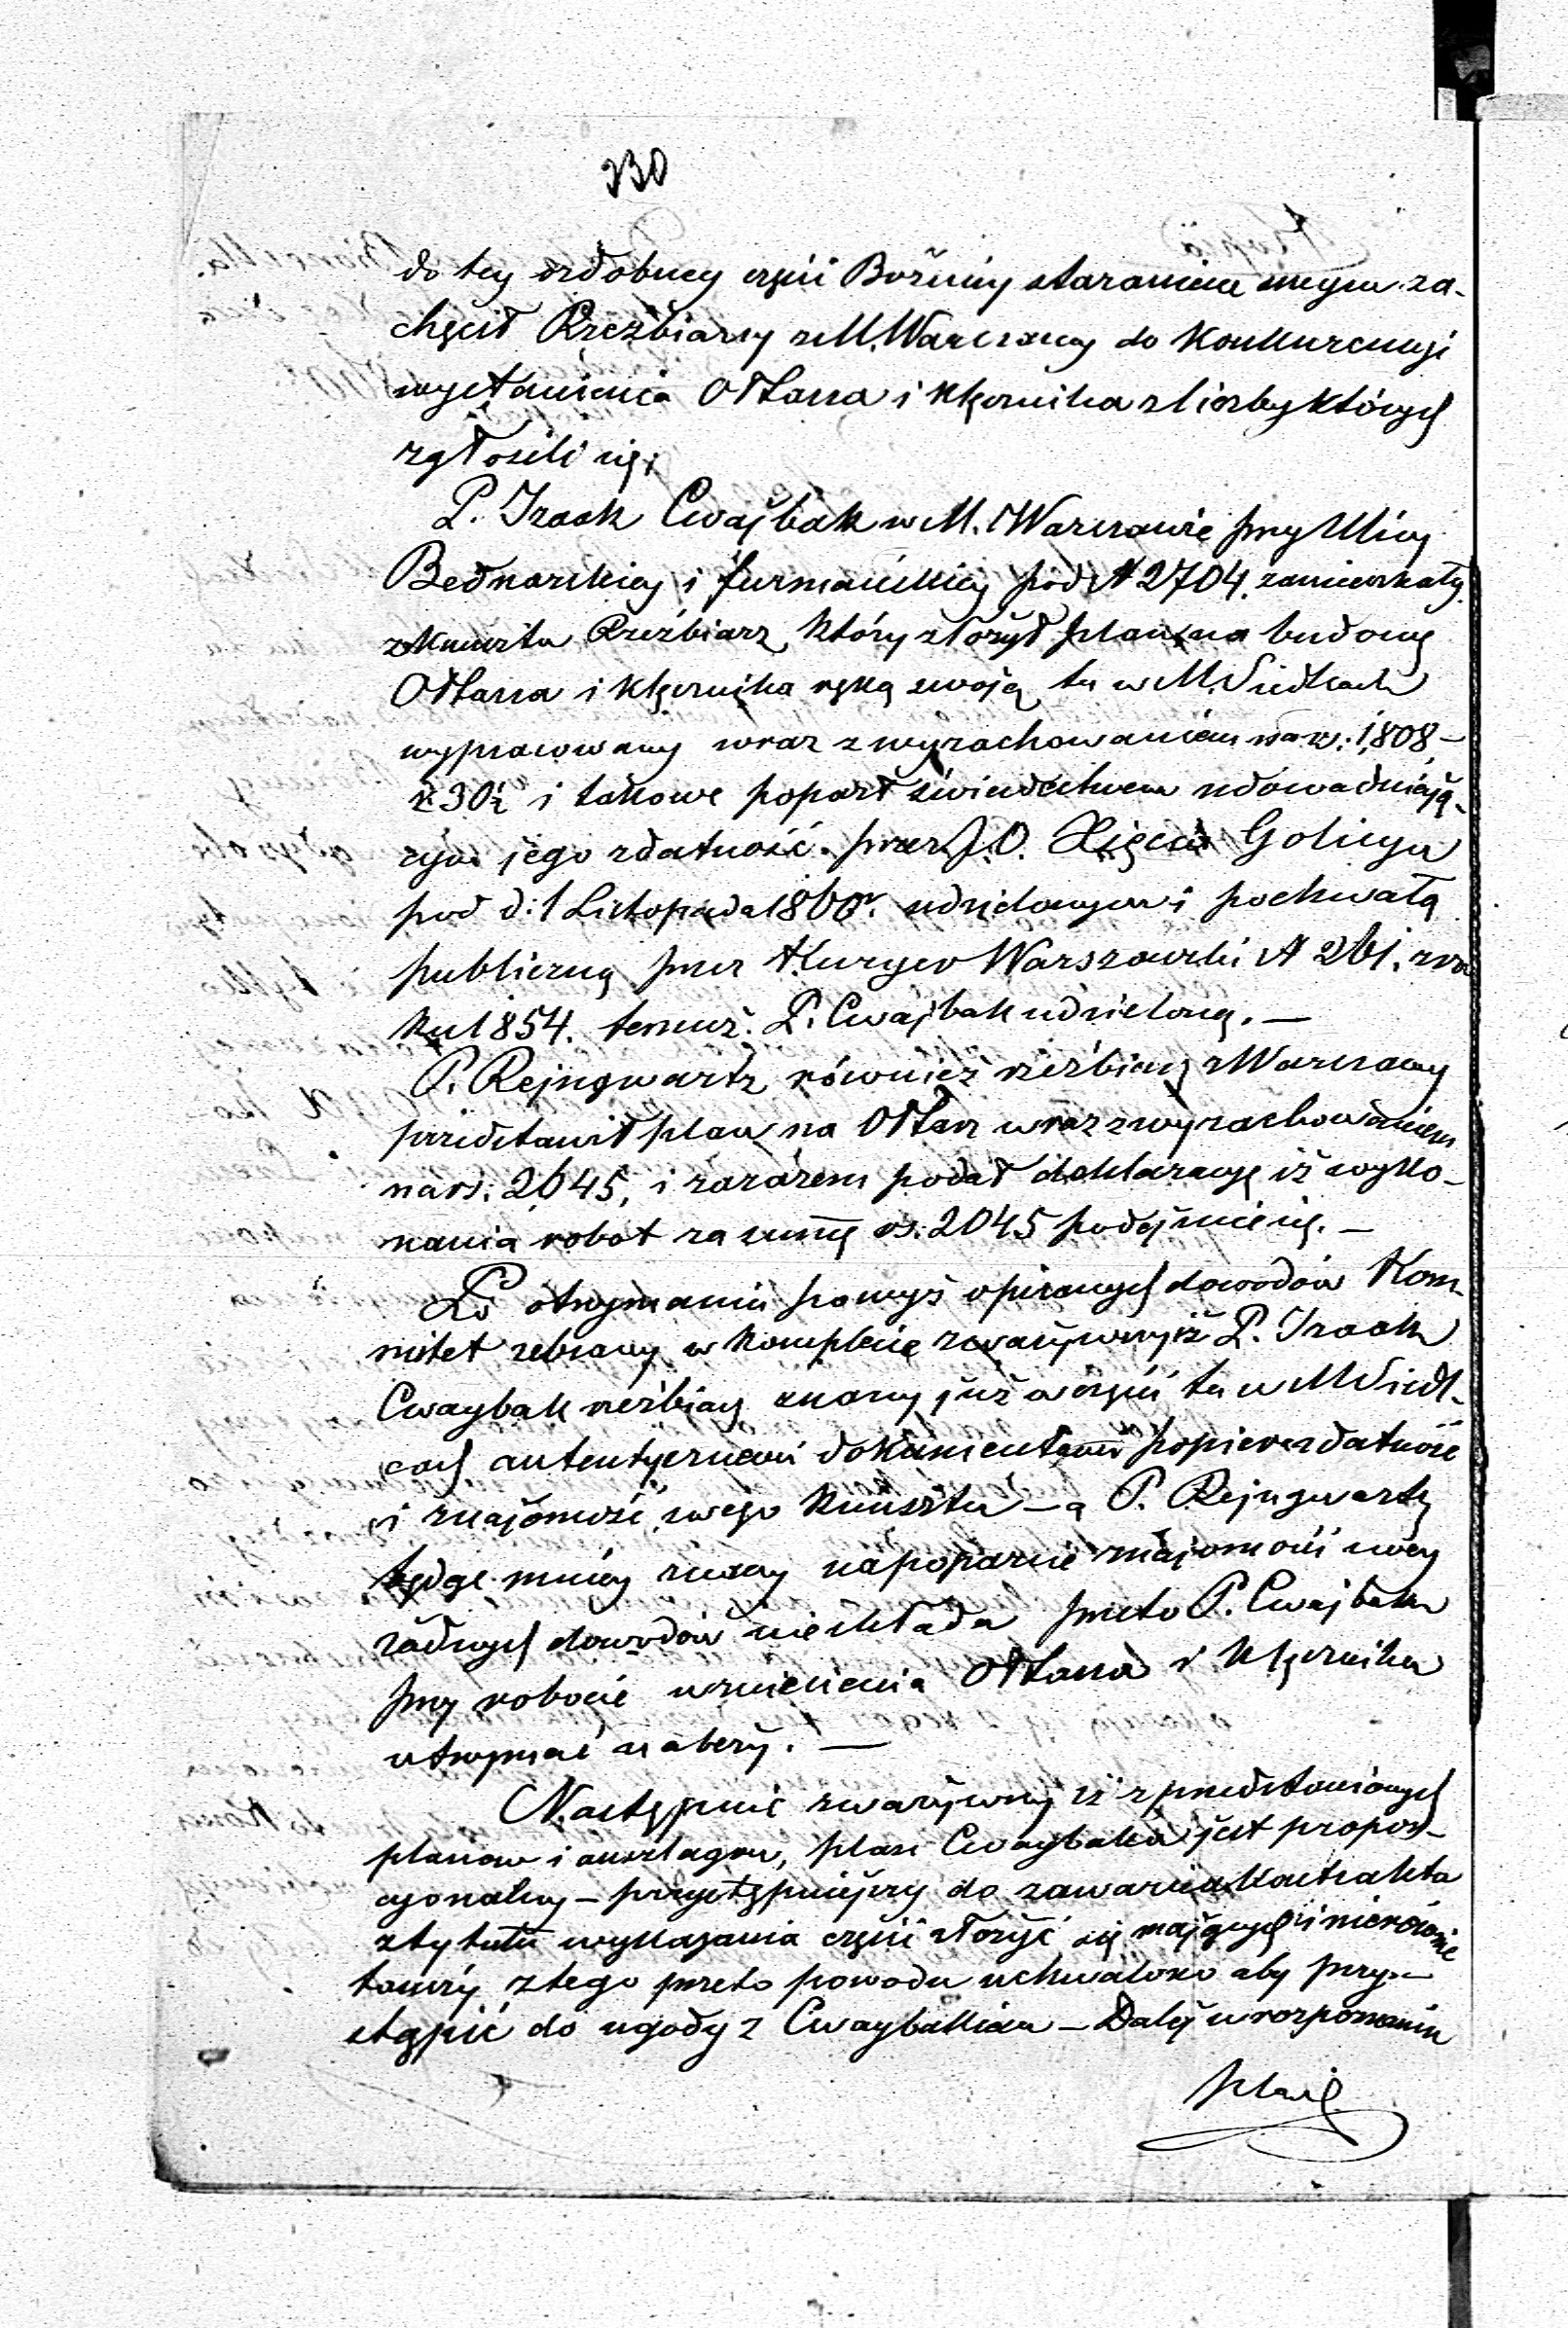 330
do tey ozdobney części Bożnicy staraniem swym za-
chęcił Rzeźbiarzy z M. Warszawy do Konkurencyi
wystawienia Ołtarza i Kłęcznika z liczby których
zgłosili się;
P. Izaak Cwajbak w M. Warszawie przy Ulicy
Bednarskiey i furmańskiey pod N 2704. zamieszkały
z Kunsztu Rzeźbiarz, który złożył plan na budowę
Ołtarza i Kłęcznika ręką swoją tu w M. Siedlcach
wypracowany wraz z wyrachowaniem na rs: 1,808 –
k 30½ i takowe poparł świadectwem udowadniają-
cym jego zdatność przez J. O. Xięcia Golicyn
pod d: 1 Listopada 1860 r. udzielonym i pochwałą
publiczną przez Kuryer Warszawski N 261. z ro
ku 1854. temuż P. Cwajbak udzieloną. —
P. Rejngwartz również rzeźbiarz z Warszawy
przedstawił plan na Ołtarz wraz z wyrachowaniem
na rs: 2645, i zarazem podał deklaracyę iż wyko-
nania robot za summę rs: 2045 podejmie się. —
Po otrzymaniu powyż opisanych dowodów Kom-
mitet zebrany w komplecie zważywszy iż P. Izaak
Cwaybak rzeźbiarz znany już w części tu w M Siedl-
cach autentycznemi dokumentami popiera zdatność
i znajomość swego Kunsztu – a P. Rejngwartz
będąc mniey znany na poparcie znajomości swey
żadnych dowodów nie składa przeto P. Cwajbaka
przy robocie wzniesienia Ołtarza i Kłęcznika
utrzymać należy. —
Następnie zważywszy iż z przedstawionych
planow i anszlagow, plan Cwaybaka jest propor-
cyonalny – przystępniejszy do zawarcia Kontraktu
z tytułu wykazania części złożyć się mających i nierównie
tańszy z tego przeto powodu uchwalono aby przy-
stąpić do ugody z Cwaybakiem – Daley w rozpoznaniu